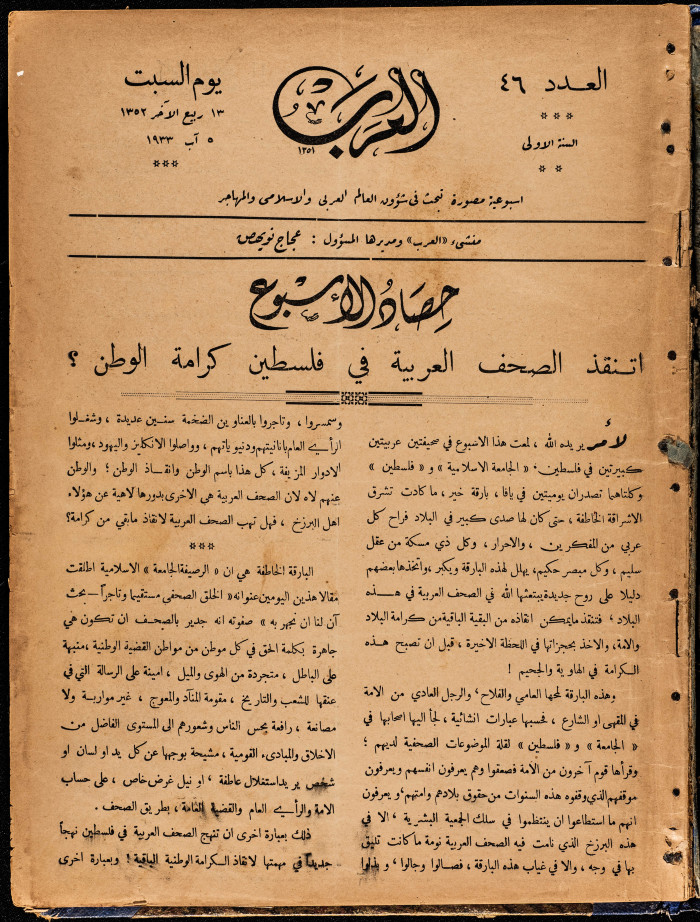 العدد ٤٦
السنة الاولى
العرب
١٣٥١
يوم السبت
١٣ ربيع الآخر ١٣٥٢
٥ آب ١٩٣٣
اسبوعية مصورة تبحث فى شؤون العالم العربى والاسلامى والمهاجر
منشىء «العرب» ومديرها المسؤول : عجاج نويهض
حصاد الأسبوع
اتنقذ الصحف العربية في فلسطين كرامة الوطن ؟
لأمر يريده الله ، لمعت هذا الاسبوع في صحيفتين عربيتين
كبيرتين في فلسطين: « الجامعة الاسلامية » و « فلسطين »
وكلتاهما تصدران يوميتين في يافا ، بارقة خير ، ما كادت تشرق
الاشراقة الخاطفة ، حتى كان لها صدى كبير في البلاد فراح كل
عربي من المفكرين ، والاحرار ، وكل ذي مسكة من عقل
سليم ، وكل مبصر حكيم، يهلل لهذه البارقة ويكبر ، واتخذها بعضهم
دليلا على روح جديدة يبتعثها الله في الصحف العربية في هــذه
البلاد ، فتنقذ مايمكن انقاذه من البقية الباقية من كرامة البلاد
والامة، والاخذ بحجزاتها في اللحظة الاخيرة ، قبل ان تصبح هــذه
الكرامة في الهاوية والجحيم !
وهذه البارقة لمحها العامي والفلاح ، والرجل العادي من الامة
في المقهى او الشارع ، فحسبها عبارات انشائية ، لجأ اليها اصحابها في
« الجامعة » و « فلسطين » لقلة الموضوعات الصحفية لديهم ؛
وقرأها قوم آخرون من الامة فصعقوا وهم يعرفون انفسهم ويعرفون
موقفهم الذي وقفوه هذه السنوات من حقوق بلادهم وامتهم، ويعرفون
انهم ما استطاعوا ان ينتظموا في سلك الجمعية البشرية ، الا في
هذه البرزخ الذي نامت فيه الصحف العربية نومة ما كانت تليق
بها في وجه ، والا في غياب هذه البارقة ، فصــالوا وجالوا ، و بذلوا
وسمسروا ، وتاجروا بالعناوين الضخمة سنــين عديدة ، وشغــلوا
الرأي العام بانانيتهم ودنيوياتهم ، وواصلوا الانكليز واليهود، ومثلوا
الادوار المزيفة ، كل هذا باسم الوطن وانقــاذ الوطن ؛ والوطن
عنهم لاه لان الصحف العربية هي الاخرى بدورها لاهية عن هؤلاء
اهل البرزخ ، فهل تهب الصحف العربية لانقاذ مابقي من كرامة؟
البارقة الخاطفة هي ان « الرصيفة الجامعة » الاسلامية اطلقت
مقالا هذين اليومين عنوانه « الخلق الصحفي مستقيما وتاجراً ـ بحث
آن لنا ان نجهر به » صفوته انه جدير بالصحــف ان تكون هي
جاهرة بكلمة الحق في كل موطن من مواطن القضية الوطنية ، منبهة
على الباطل ، متجردة من الهوى والميل ، امينة على الرسالة التي في
عنقها للشعب والتاريخ ، مقومة المنآد والمعوج ، غير مواربة ولا
مصانعة ، رافعة بحس الناس وشعورهم الى المستوى الفاضل من
الاخلاق والمبادىء القومية ، مشيحة بوجهها عن كل يد او لسان او
شخص يريد استغلال عاطفة ، او نيل غرض خاص ، على حساب
الامة والرأي العام والقضية العامة ، بطريق الصحف .
ذلك بعبارة اخرى ان تنهج الصحف العربية في فلسطين نهجاً
جديداً في مهمتها لانقاذ الكرامة الوطنية الباقية ! وبعبارة اخرى